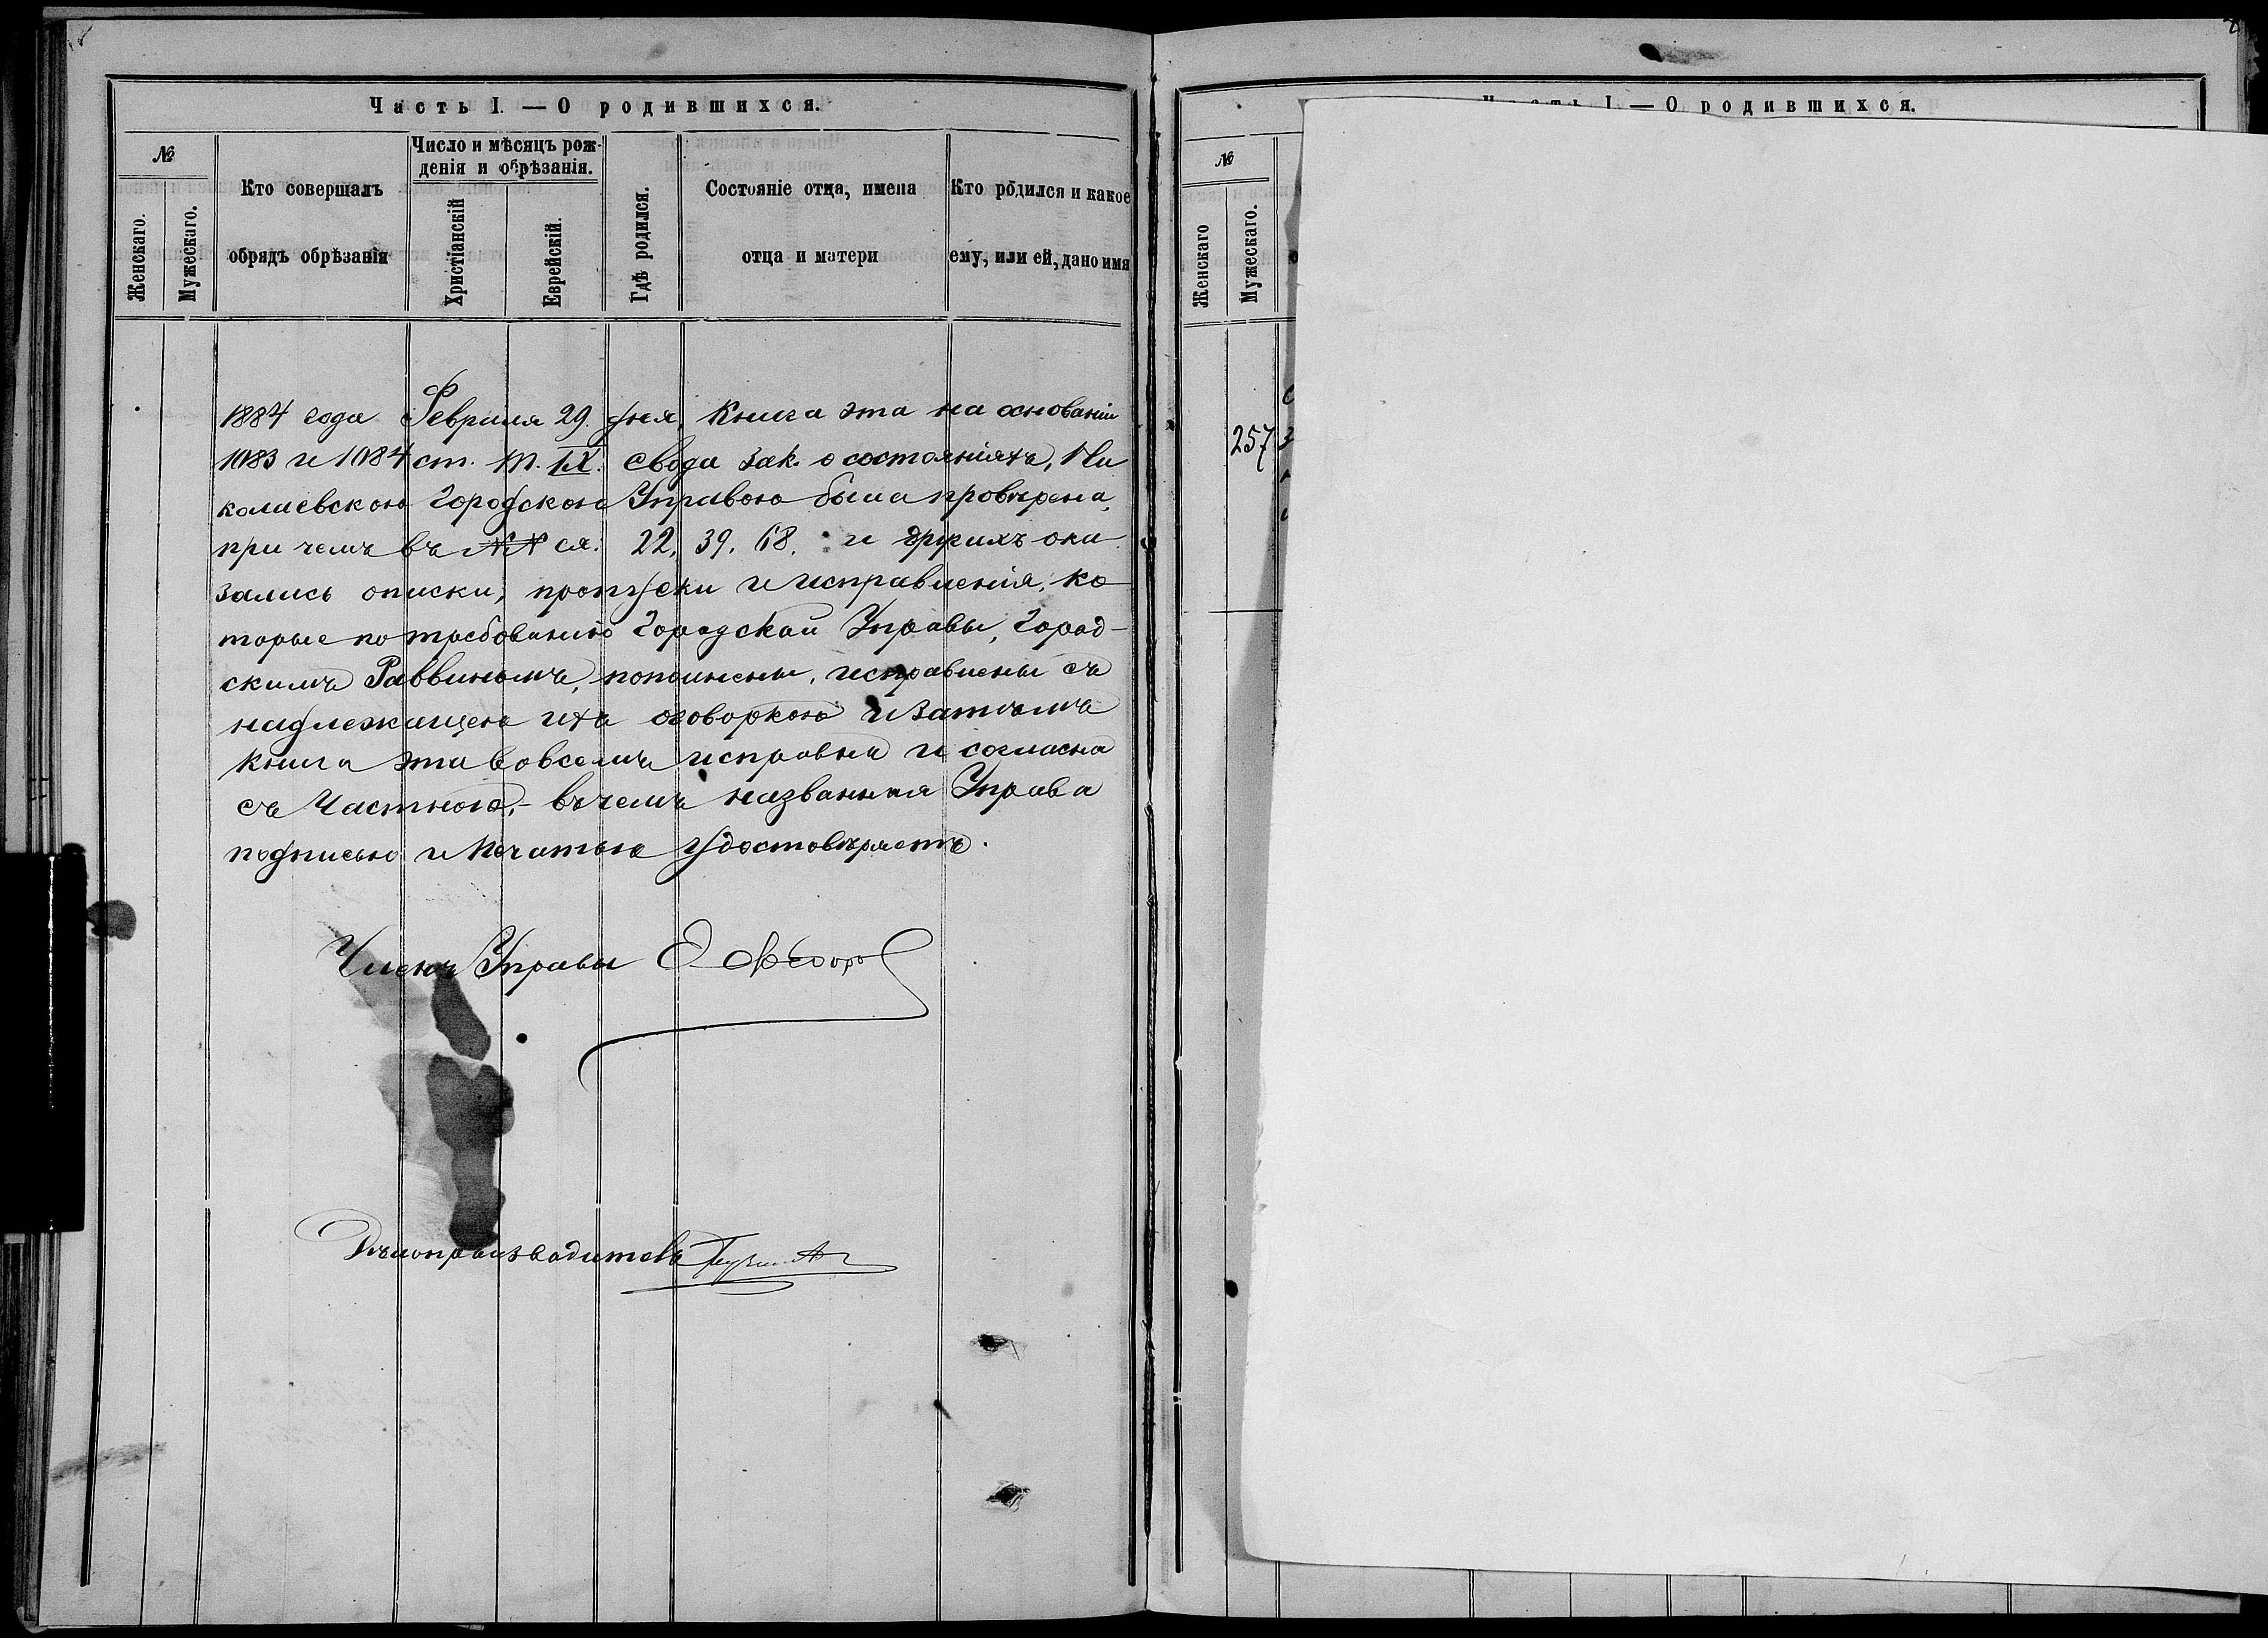 Часть I. — О родившихся.
№
Женскаго.
Мужескаго.
Кто совершалъ
обрядъ обрѣзанія
Число и мѣсяцъ рож-
денія и обрѣзанія.
Христіанскій
Еврейскій.
Гдѣ родился.
Состояніе отца, имена
отца и матери
Кто родился и какое
ему, или ей, дано имя
1884 года Февраля 29. дня, Книга эта на основаніи
1083 и 1084 ст. т. IX. свода зак. о состояніяхъ, Ни
колаевскою Городскою Управою была провѣрена,
при чемъ въ №№ ея: 22, 39, 68, и другихъ ока
зались описки, пропуски и исправленія, ко-
торые по требованію Городской Управы, Город-
скимъ Раввиномъ, пополнены, исправлены съ
надлежащею ихъ оговоркою и затѣмъ
книга эта вовсемъ исправна и согласна
съ Частною, - въ чемъ названная Управа
подписью и печатью удостовѣряетъ.
Членъ Управы
Дѣлопроизводитель
Часть I. — О родившихся.
№
Женскаго
Мужескаго.
257